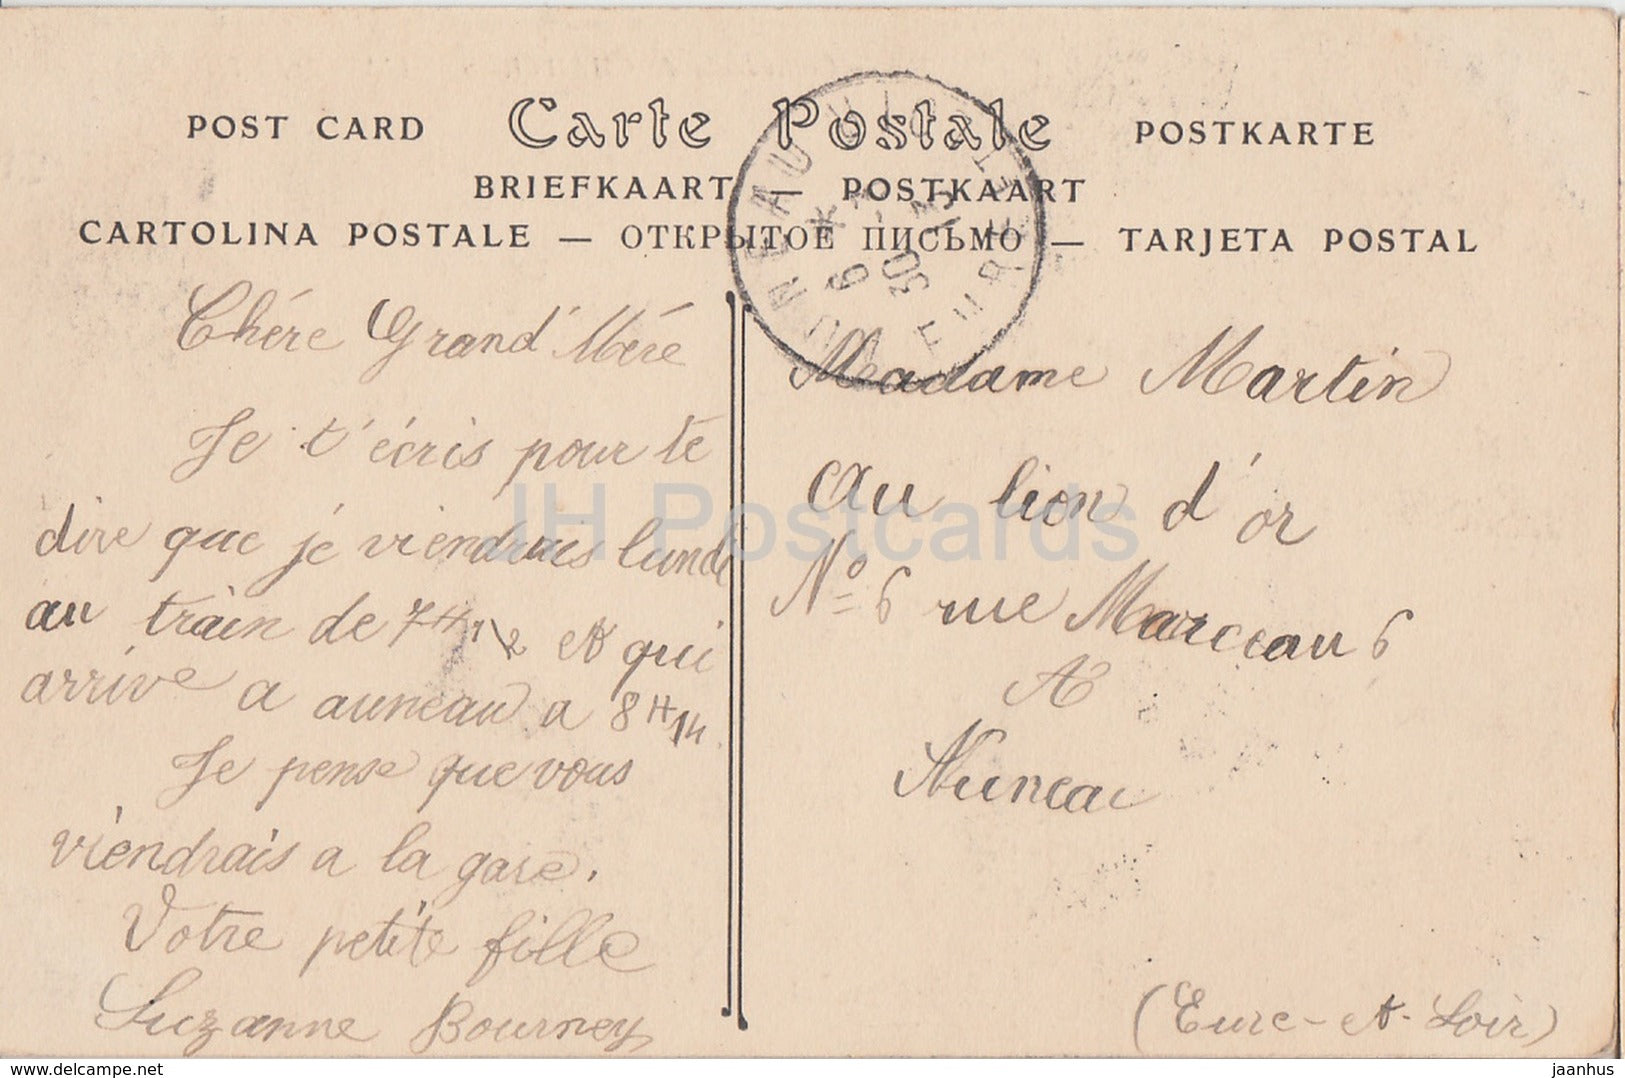 POST CARD Carte Postale POSTKARTE
BRIEFKAART — POSTKAART
CARTOLINA POSTALE — ОТКРЫТОЕ ПИСЬМО — TARJETA POSTAL
Chére Grand' Mére
Je t'écris pour te
dire que je viendrais lundi
au train de 7H 1/2 et qui
arrive a auneau a 8H 1/4.
Je pense que vous
viendrais a la gare.
Votre petite fille
Suzanne Bourney
Madame Martin
Au lion d'or
No 6 rue Marceau 6
A
Auneau
(Eure-et-Loir)
EURE
JH Postcards
jaanhus.ee
jaanhus